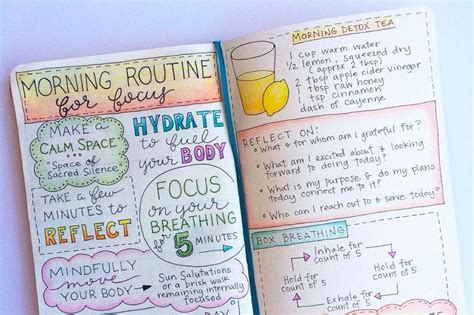 MORNING ROUTINE
for focus
MAKE A
CALM SPACE
Space of
Sacred Silence
HYDRATE
to fuel
your BODY
TAKE A few
MINUTES to
REFLECT
FOCUS
on your
BREATHING
for 5
MINUTES
MINDFULLY
move
YOUR BODY
Sun Salutations
or a brisk walk
remaining internally
focused
MORNING DETOX TEA
1 cup warm water
1/2 lemon, squeezed dry
(approx 2 tbsp)
2 tbsp apple cider vinegar
1 tbsp raw honey
1 tsp cinnamon
dash of cayenne
REFLECT ON:
• What & for whom am I grateful for?
• What am I excited about & looking
forward to doing today?
• What is my purpose & do my plans
today connect me to it?
• Who can I reach out to & serve today?
BOX BREATHING
Inhale for
count of 5
Hold for
count of 5
Hold for
count of 5
Exhale for
count of 5